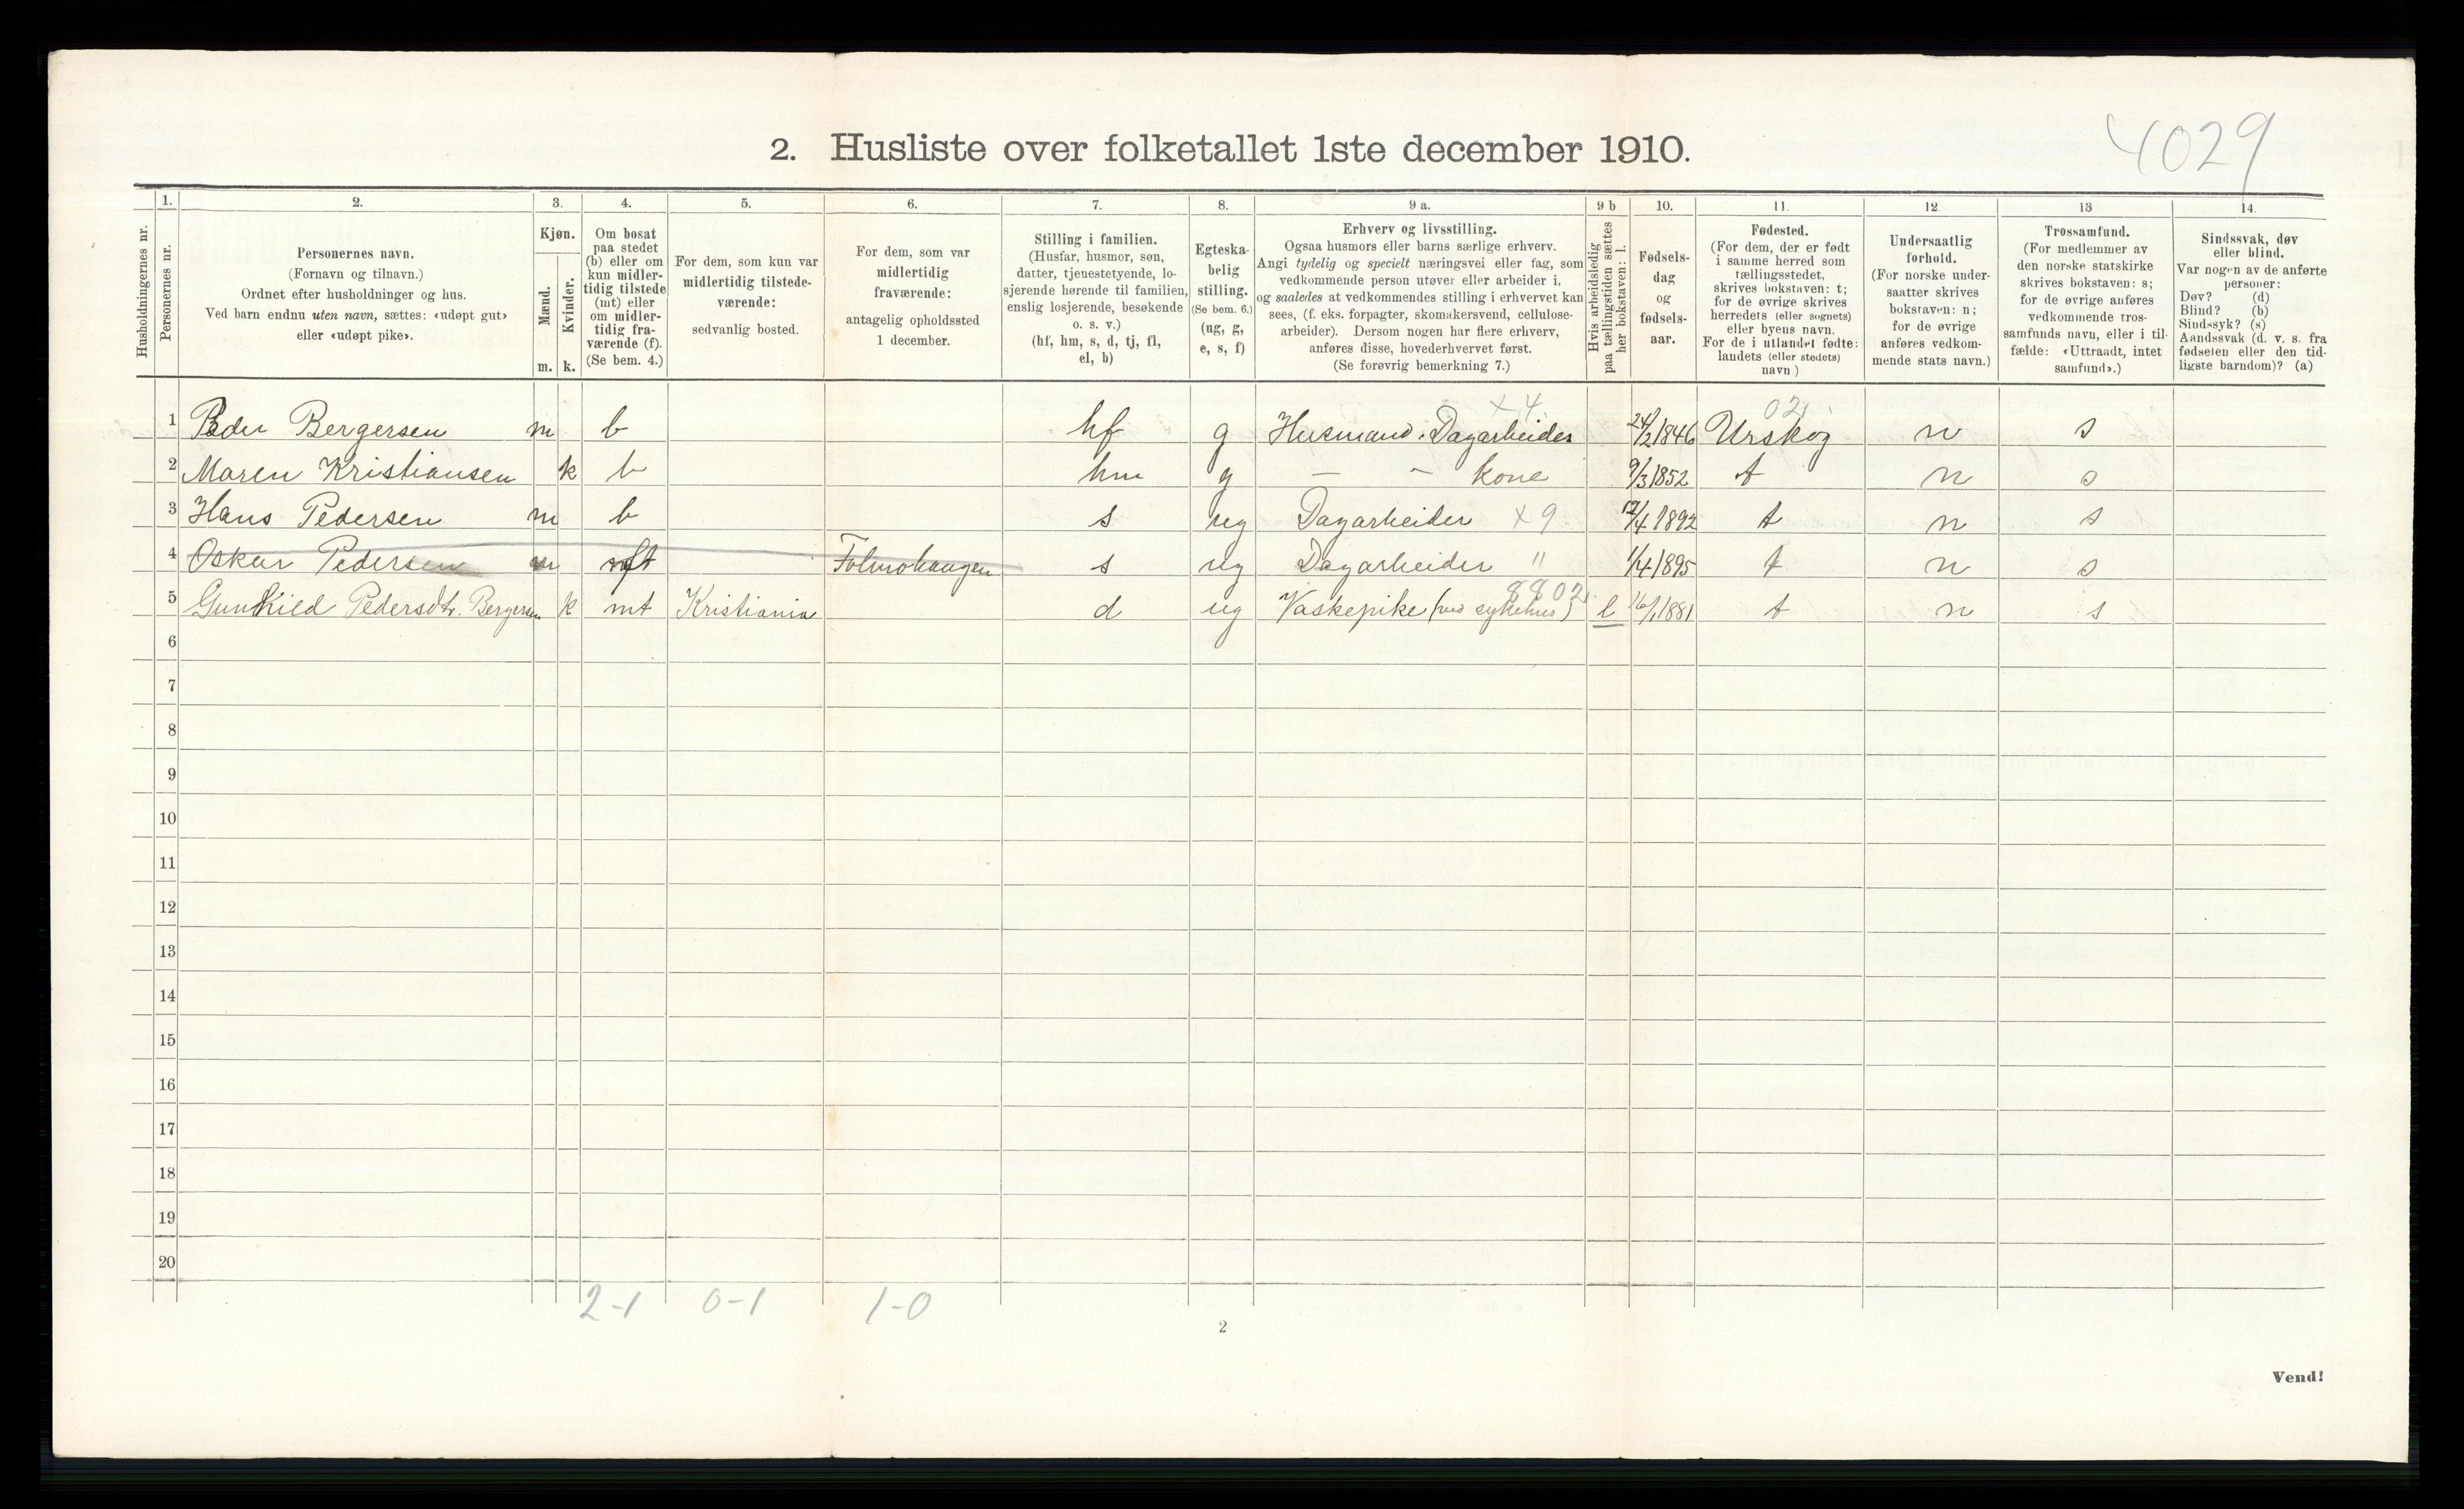 4029
2. Husliste over folketallet 1ste december 1910.
Husholdningernes nr.
1.
Personernes nr.
2.
Personernes navn.
(Fornavn og tilnavn.)
Ordnet efter husholdninger og hus.
Ved barn endnu uten navn, sættes: «udøpt gut»
eller «udøpt pike».
3.
Kjøn.
Mænd.
Kvinder.
m. k.
4.
Om bosat
paa stedet
(b) eller om
kun midler-
tidig tilstede
(mt) eller
om midler-
tidig fra-
værende (f).
(Se bem. 4.)
5.
For dem, som kun var
midlertidig tilstede-
værende:
sedvanlig bosted.
6.
For dem, som var
midlertidig
fraværende:
antagelig opholdssted
1 december.
7.
Stilling i familien.
(Husfar, husmor, søn,
datter, tjenestetyende, lo-
sjerende hørende til familien,
enslig losjerende, besøkende
o. s. v.)
(hf, hm, s, d, tj, fl,
el, b)
8.
Egteska-
belig
stilling.
(Se bem. 6.)
(ug, g,
e, s, f)
9 a.
Erhverv og livsstilling.
Ogsaa husmors eller barns særlige erhverv.
Angi tydelig og specielt næringsvei eller fag, som
vedkommende person utøver eller arbeider i,
og saaledes at vedkommendes stilling i erhvervet kan
sees, (f. eks. forpagter, skomakersvend, cellulose-
arbeider). Dersom nogen har flere erhverv,
anføres disse, hovederhvervet først.
(Se forøvrig bemerkning 7.)
9 b
Hvis arbeidsledig
paa tællingstiden sættes
her bokstaven: l.
10.
Fødsels-
dag
og
fødsels-
aar.
11.
Fødested.
(For dem, der er født
i samme herred som
tællingsstedet,
skrives bokstaven: t;
for de øvrige skrives
herredets (eller sognets)
eller byens navn.
For de i utlandet fødte:
landets (eller stedets)
navn.)
12.
Undersaatlig
forhold.
(For norske under-
saatter skrives
bokstaven: n;
for de øvrige
anføres vedkom-
mende stats navn.)
13
Trossamfund.
(For medlemmer av
den norske statskirke
skrives bokstaven: s;
for de øvrige anføres
vedkommende tros-
samfunds navn, eller i til-
fælde: «Uttraadt, intet
samfund».)
14.
Sindssvak, døv
eller blind.
Var nogen av de anførte
personer:
Døv? (d)
Blind? (b)
Sindssyk? (s)
Aandssvak (d. v. s. fra
fødselen eller den tid-
ligste barndom)? (a)
x 4 02
1 Peder Bergersen m b hf g Husmand. Dagarbeider 24/2 1846 Urskog n s
2 Maren Kristiansen k b hm g — - kone 9/3 1852 t n s
3 Hans Pedersen m b s ug Dagarbeider x 9 12/4 1892 t n s
4 Oskar Pedersen m s ug Dagarbeider " 1/4 1895 t n s
8802
5 Gunhild Pedersdtr. Bergersen k mt Kristiania d ug Vaskepike (ved sykehus) l 16/1 1881 t n s
6
7
8
9
10
11
12
13
14
15
16
17
18
19
20
2-1 0-1 1-0
2
Vend!